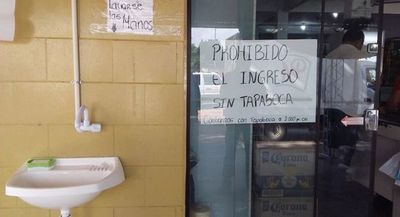 Lavarse
las
Manos
PROHIBIDO
EL INGRESO
SIN TAPABOCA
Contamos con Tapaboca a 2.000
Corona